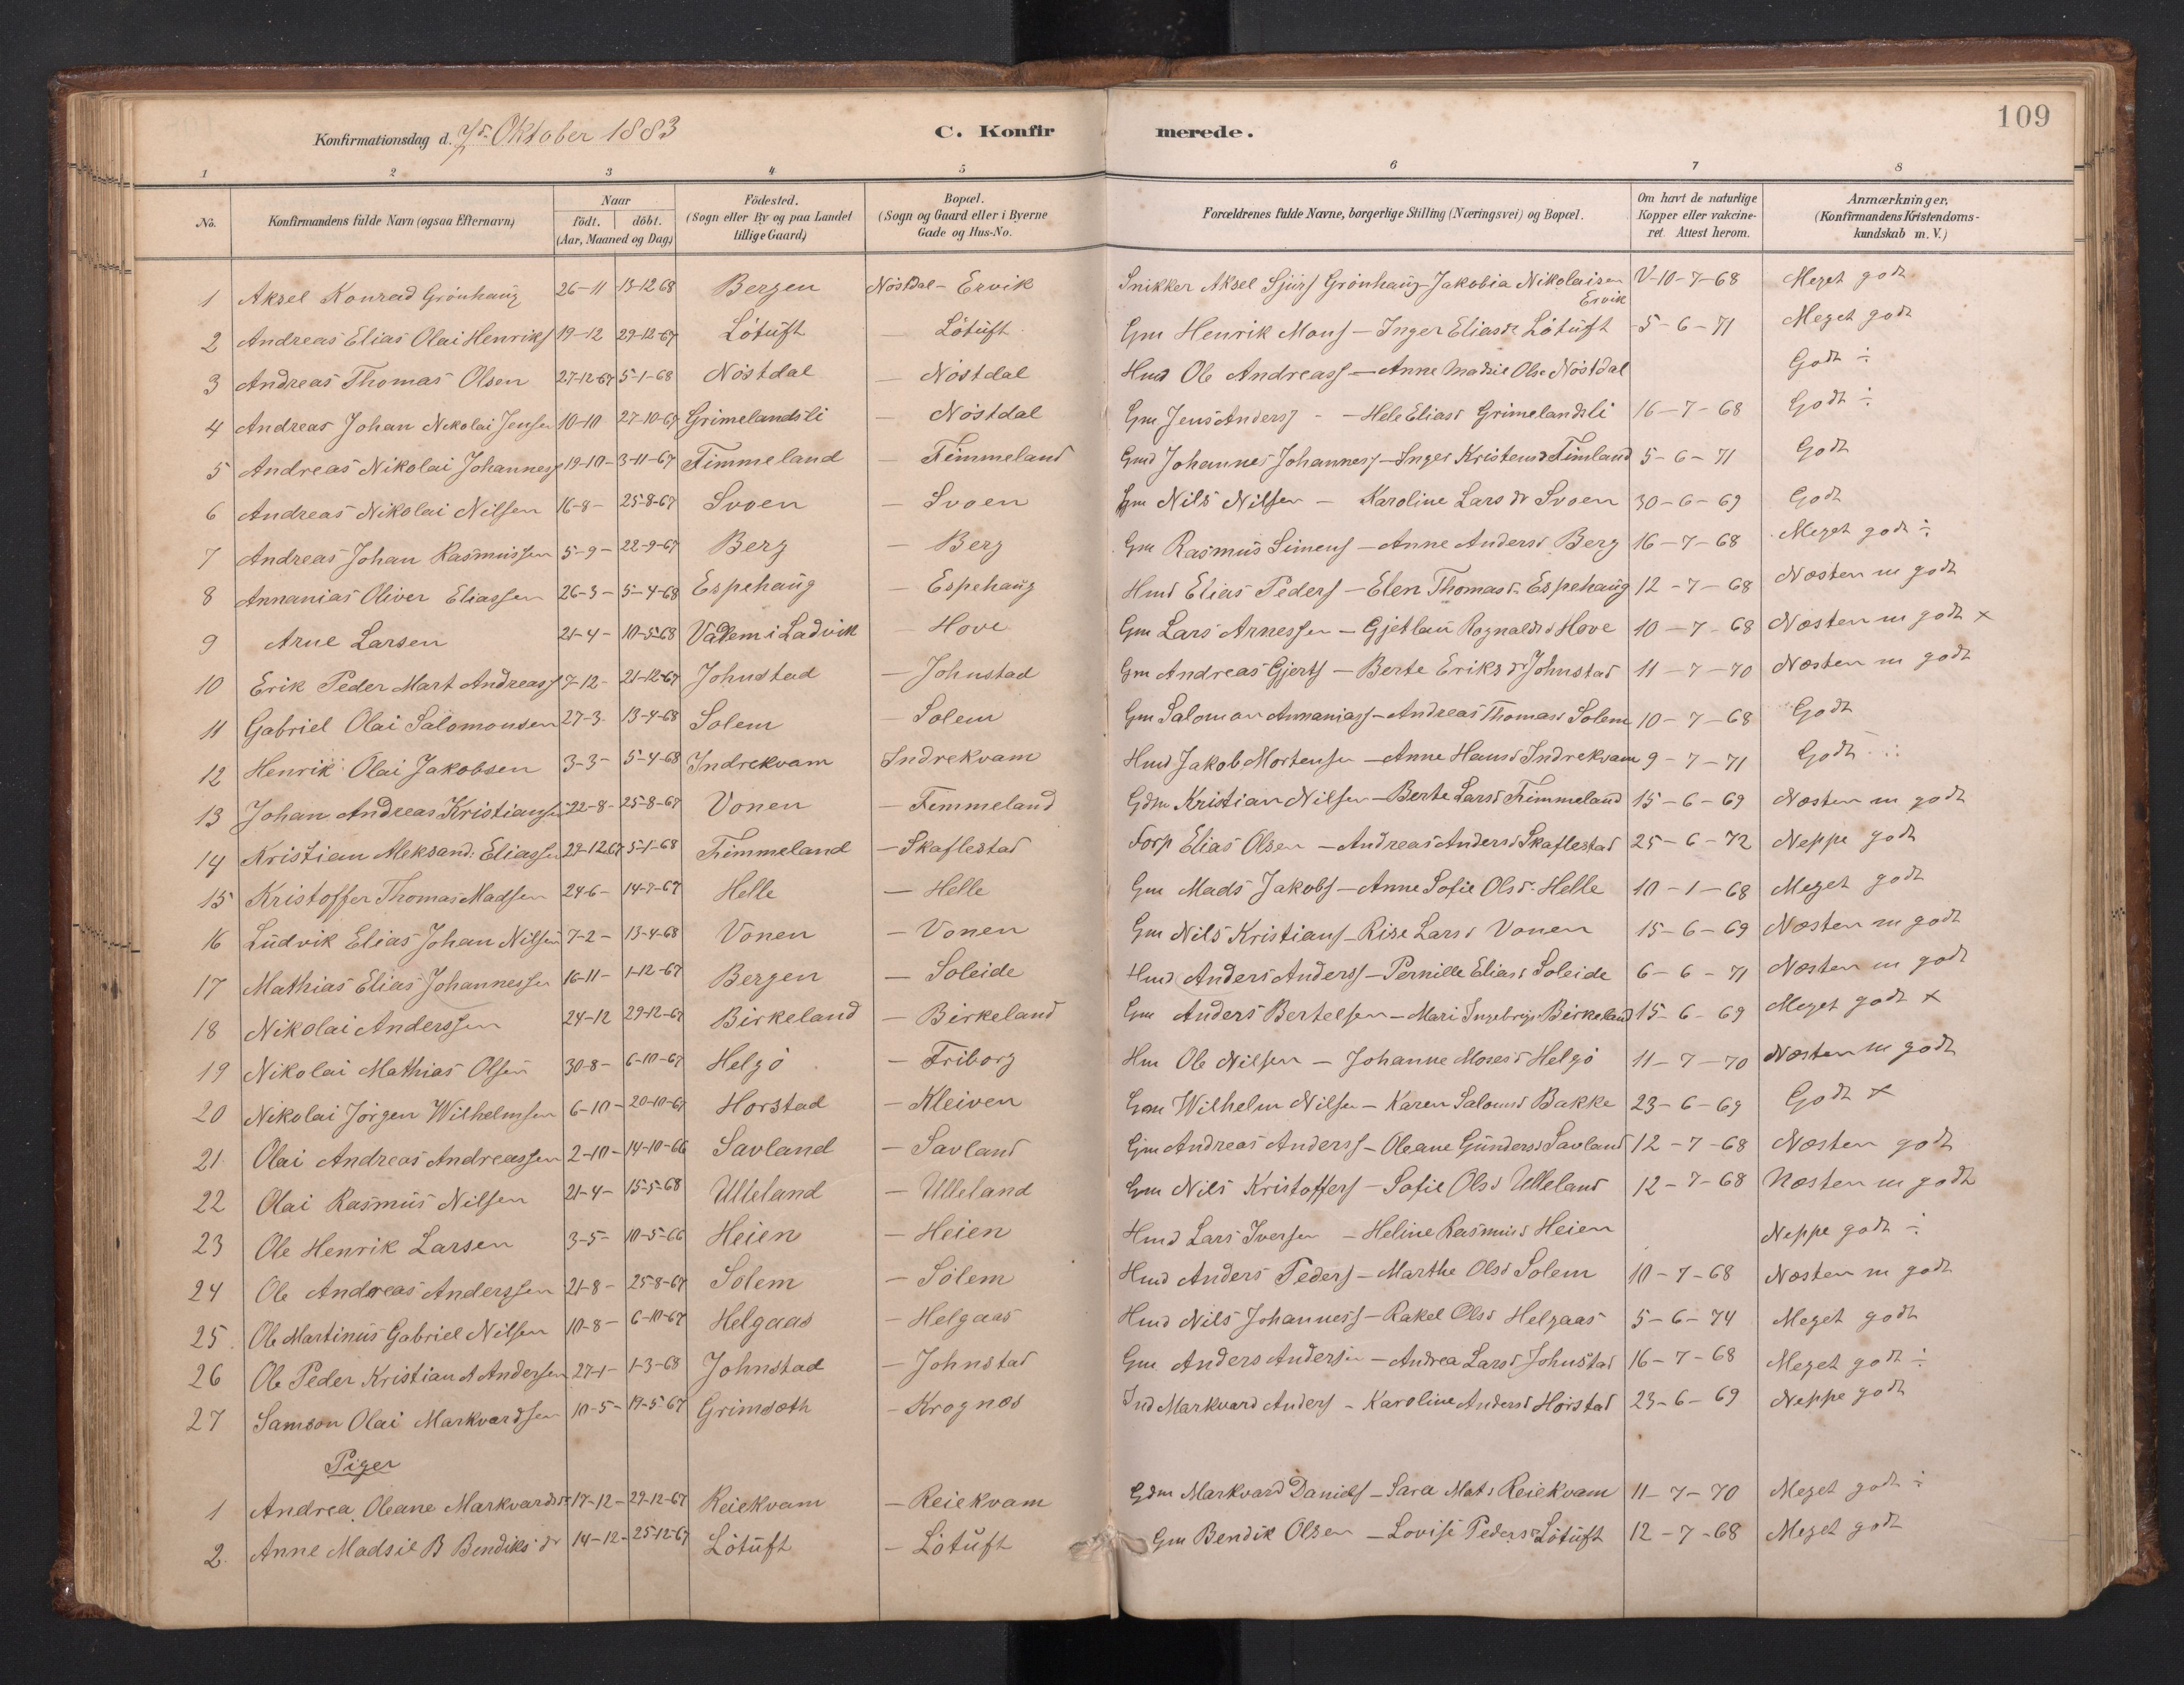 109
Konfirmationsdag d. 7de Oktober 1883 C. Konfirmerede.
1 2 3 4 5 6 7 8
No. Konfirmandens fulde Navn (ogsaa Efternavn) Naar födt. döbt. (Aar, Maaned og Dag) Födested. (Sogn eller By og paa Landet tillige Gaard) Bopæl. (Sogn og Gaard eller i Byerne Gade og Hus-No. Forældrenes fulde Navne, borgerlige Stilling (Næringsvei) og Bopæl. Om havt de naturlige Kopper eller vakcineret. Attest herom. Anmærkninger, (Konfirmandens Kristendomskundskab m. V.)
1 Aksel Konrad Grönhaug 26-11 13-12 68 Bergen Nöstdal - Ervik Snikker Aksel Sjurs Grönhaug - Jakobia Nikolaisen Ervik V-10-7-68 Meget godt
2 Andreas Elias Olai Henriks 19-12 29-12-67 Lötuft — Lötuft Gm Henrik Mons - Inger Eliasdr Lötuft 5-6-71 Meget godt
3 Andreas Thomas Olsen 27-12-67 5-1-68 Nöstdal — Nöstdal Hmd Ole Andreass - Anne Madsie Olsd Nöstdal Godt ÷
4 Andreas Johan Nikolai Jensen 10-10 27-10-67 Grimelandsli — Nöstdal Gm Jens Anderss - Hele Eliasd Grimelandsli 16-7-68 Godt ÷
5 Andreas Nikolai Johanness 19-10- 3-11-67 Timmeland — Timmeland Gmd Johannes Johanness - Inger Kristensd Timland 5-6-71 Godt
6 Andreas Nikolai Nilsen 16-8- 25-8-67 Svoen — Svoen Gm Nils Nilsen - Karoline Larsdr Svoen 30-6-69 Godt
7 Andreas Johan Rasmussen 5-9- 22-9-67 Berg — Berg Gm Rasmus Simens - Anne Andersd Berg 16-7-68 Meget godt ÷
8 Annanias Oliver Eliassen 26-3- 5-4-68 Espehaug — Espehaug Hmd Elias Peders - Elen Thomasd Espehaug 12-7-68 Næsten m godt
9 Arne Larsen 21-4- 10-5-68 Vadem i Ladvik — Hove Gm Lars Arnessen - Gjetlau Rognaldsd Hove 10-7-68 Næsten m godt ×
10 Erik Peder Mart Andreass 7-12- 21-12-67 Johnstad — Johnstad Gm Andreas Gjerts - Berte Eriksdr Johnstad 11-7-70 Næsten m godt
11 Gabriel Olai Salomonsen 27-3- 13-4-68 Solem — Solem Gm Salomon Annaniass - Andreas Thomasd Solem 10-7-68 Godt
12 Henrik Olai Jakobsen 3-3- 5-4-68 Indrekvam Indrekvam Hmd Jakob Mortensen - Anne Hansd Indrekvam 9-7-71 Godt ÷
13 Johan Andreas Kristiansen 22-8- 25-8-67 Vonen — Timmeland Gdm Kristian Nilsen - Berte Larsd Timmeland 15-6-69 Næsten m godt
14 Kristian Aleksand: Eliassen 29-12-67 5-1-68 Timmeland — Skaflestad Forp Elias Olsen - Andreas Andersd Skaflestad 25-6-72 Neppe godt
15 Kristoffer Thomas Madsen 24-6- 14-7-67 Helle — Helle Gm Mads Jakobs - Anne Sofie Olsd. Helle 10-1-68 Meget godt
16 Ludvik Elias Johan Nilsen 7-2- 13-4-68 Vonen — Vonen Gm Nils Kristians - Rise Larsd Vonen 15-6-69 Næsten m godt
17 Mathias Elias Johannessen 16-11- 1-12-67 Bergen — Soleide Hmd Anders Anderss - Pernille Eliasd Soleide 6-6-71 Næsten m godt
18 Nikolai Anderssen 24-12 29-12-67 Birkeland — Birkeland Gm Anders Bertelsen - Mari Ingebrigs Birkeland 15-6-69 Meget godt ×
19 Nikolai Mathias Olsen 30-8- 6-10-67 Helgö — Friborg Hm Ole Nilsen - Johanne Mosesd Helgö 11-7-70 Næsten m godt
20 Nikolai Jörgen Wilhelmsen 6-10- 20-10-67 Horstad — Kleiven Gm Wilhelm Nilsen - Karen Salomsd Bakke 23-6-69 Godt ×
21 Olai Andreas Andreassen 2-10- 14-10-66 Savland — Savland Gm Andreas Anderss - Oleane Gundersd Savland 12-7-68 Næsten godt
22 Olai Rasmus Nilsen 21-4- 15-5-68 Ulleland — Ulleland Gm Nils Kristoffers - Sofie Olsd Ulleland 12-7-68 Næsten m godt
23 Ole Henrik Larsen 3-5- 10-5-66 Heien — Heien Hmd Lars Iversen - Heline Rasmusd Heien Neppe godt ÷
24 Ole Andreas Anderssen 21-8- 25-8-67 Solem — Solem Hmd Anders Peders - Marthe Olsd Solem 10-7-68 Næsten m godt
25 Ole Martinus Gabriel Nilsen 10-8- 6-10-67 Helgaas — Helgaas Hmd Nils Johanness - Rakel Olsd Helgaas 5-6-74 Meget godt
26 Ole Peder Kristian A Andersen 27-1- 1-3-68 Johnstad — Johnstad Gm Anders Andersen - Andrea Larsd Johnstad 16-7-68 Meget godt ÷
27 Samson Olai Markvardsen 10-5- 19-5-67 Grimsæth — Krognæs Ind Markvard Anders - Karoline Andersd Horstad 23-6-69 Neppe godt
Piger
1 Andrea Oleane Markvardsdr 17-12- 29-12-67 Reiekvam — Reiekvam Gdm Markvard Daniels - Sara Matsd Reiekvam 11-7-70 Meget godt ÷
2 Anne Madsie B Bendiksdr 14-12- 25-12-67 Lötuft — Lötuft Gm Bendik Olsen - Lovise Pedersdr Lötuft 12-7-68 Meget godt